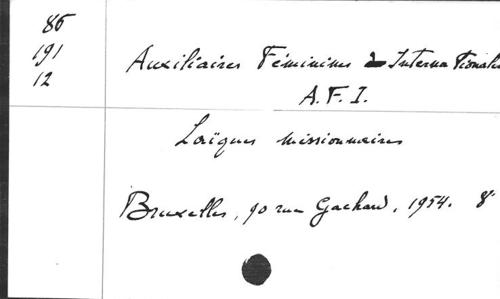 86
191
12
Auxiliaires Féminines Internationales
A.F.I.
Laïques missionnaires
Bruxelles, 90 rue Gachard, 1954. 8°